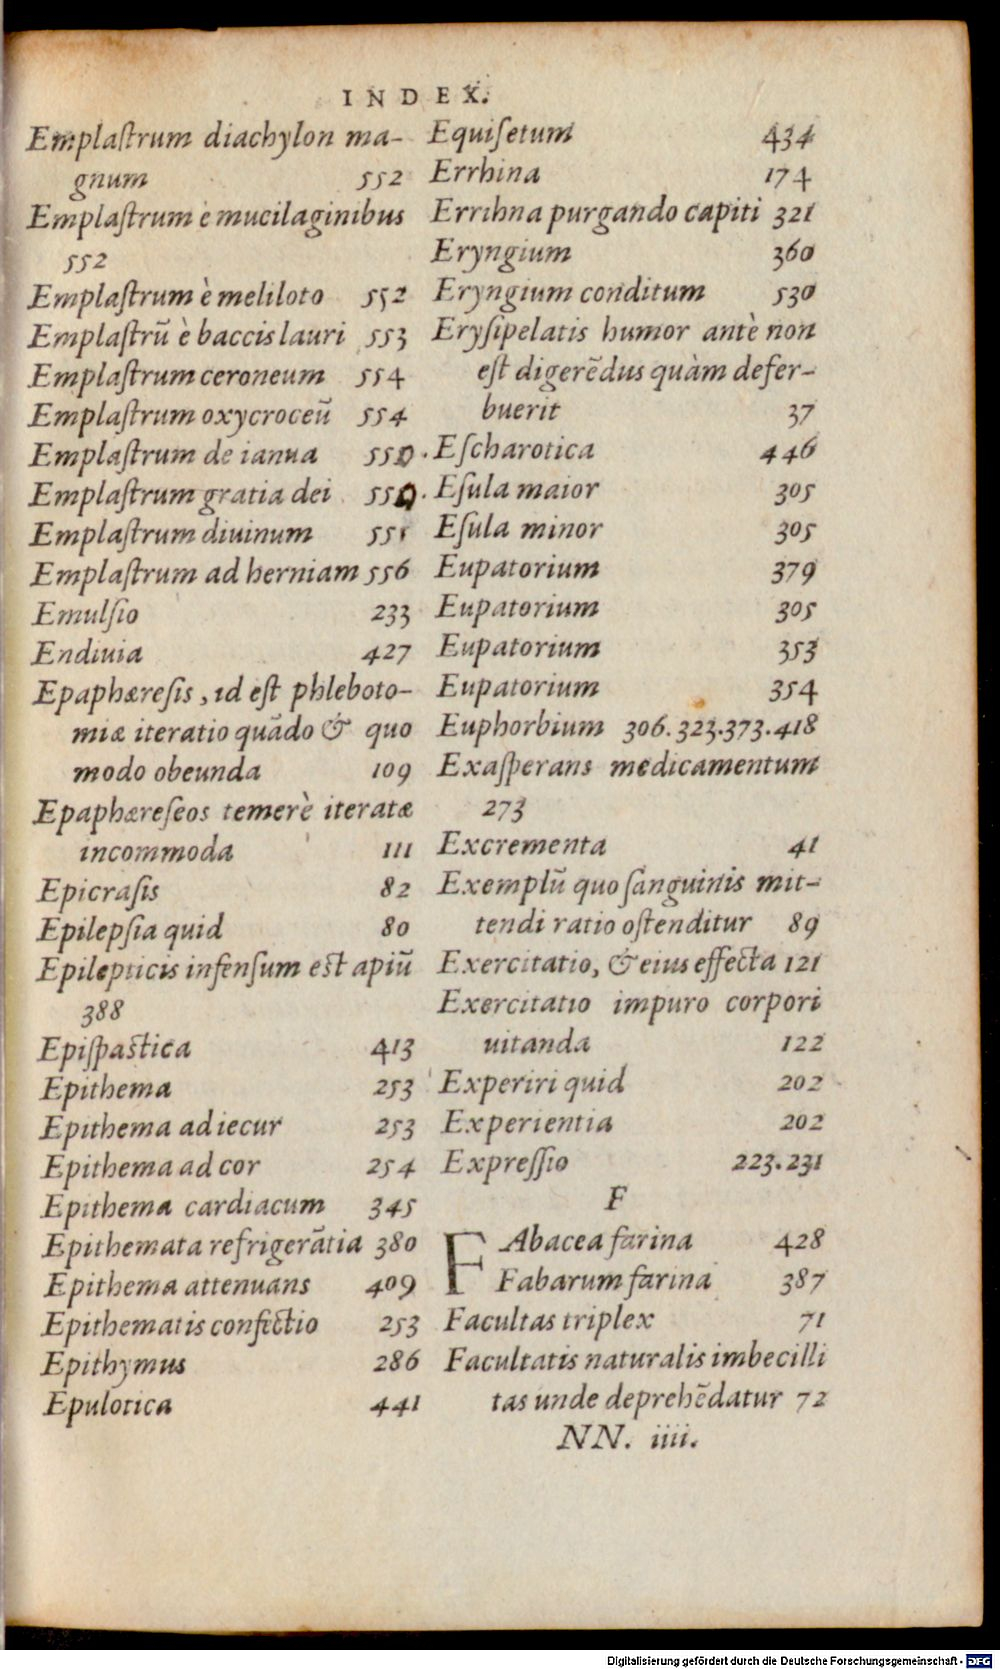 INDEX.
Emplaſtrum diachylon ma-
gnum 552
Emplaſtrum è mucilaginibus
552
Emplaſtrum è meliloto 552
Emplaſtrū è baccis lauri 553
Emplaſtrum ceroneum 554
Emplaſtrum oxycroceū 554
Emplaſtrum de ianua 550.
Emplaſtrum gratia dei 550.
Emplaſtrum diuinum 551
Emplaſtrum ad herniam 556
Emulſio 233
Endiuia 427
Epaphæreſis, id eſt phleboto-
miæ iteratio quādo & quo
modo obeunda 109
Epaphæreſeos temerè iteratæ
incommoda 111
Epicraſis 82
Epilepſia quid 80
Epilepticis infenſum eſt apiū
388
Epiſpastica 413
Epithema 253
Epithema ad iecur 253
Epithema ad cor 254
Epithema cardiacum 345
Epithemata refrigerātia 380
Epithema attenuans 409
Epithematis confectio 253
Epithymus 286
Epulotica 441
Equiſetum 434
Errhina 174
Errihna purgando capiti 321
Eryngium 360
Eryngium conditum 530
Eryſipelatis humor antè non
eſt digerēdus quàm defer-
buerit 37
Eſcharotica 446
Eſula maior 305
Eſula minor 305
Eupatorium 379
Eupatorium 305
Eupatorium 353
Eupatorium 354
Euphorbium 306.323.373.418
Exaſperans medicamentum
273
Excrementa 41
Exemplū quo ſanguinis mit-
tendi ratio oſtenditur 89
Exercitatio, & eius effecta 121
Exercitatio impuro corpori
uitanda 122
Experiri quid 202
Experientia 202
Expreſſio 223.231
F
FAbacea farina 428
Fabarum farina 387
Facultas triplex 71
Facultatis naturalis imbecilli
tas unde deprehēdatur 72
NN. iiii.
Digitalisierung gefördert durch die Deutsche Forschungsgemeinschaft - DFG